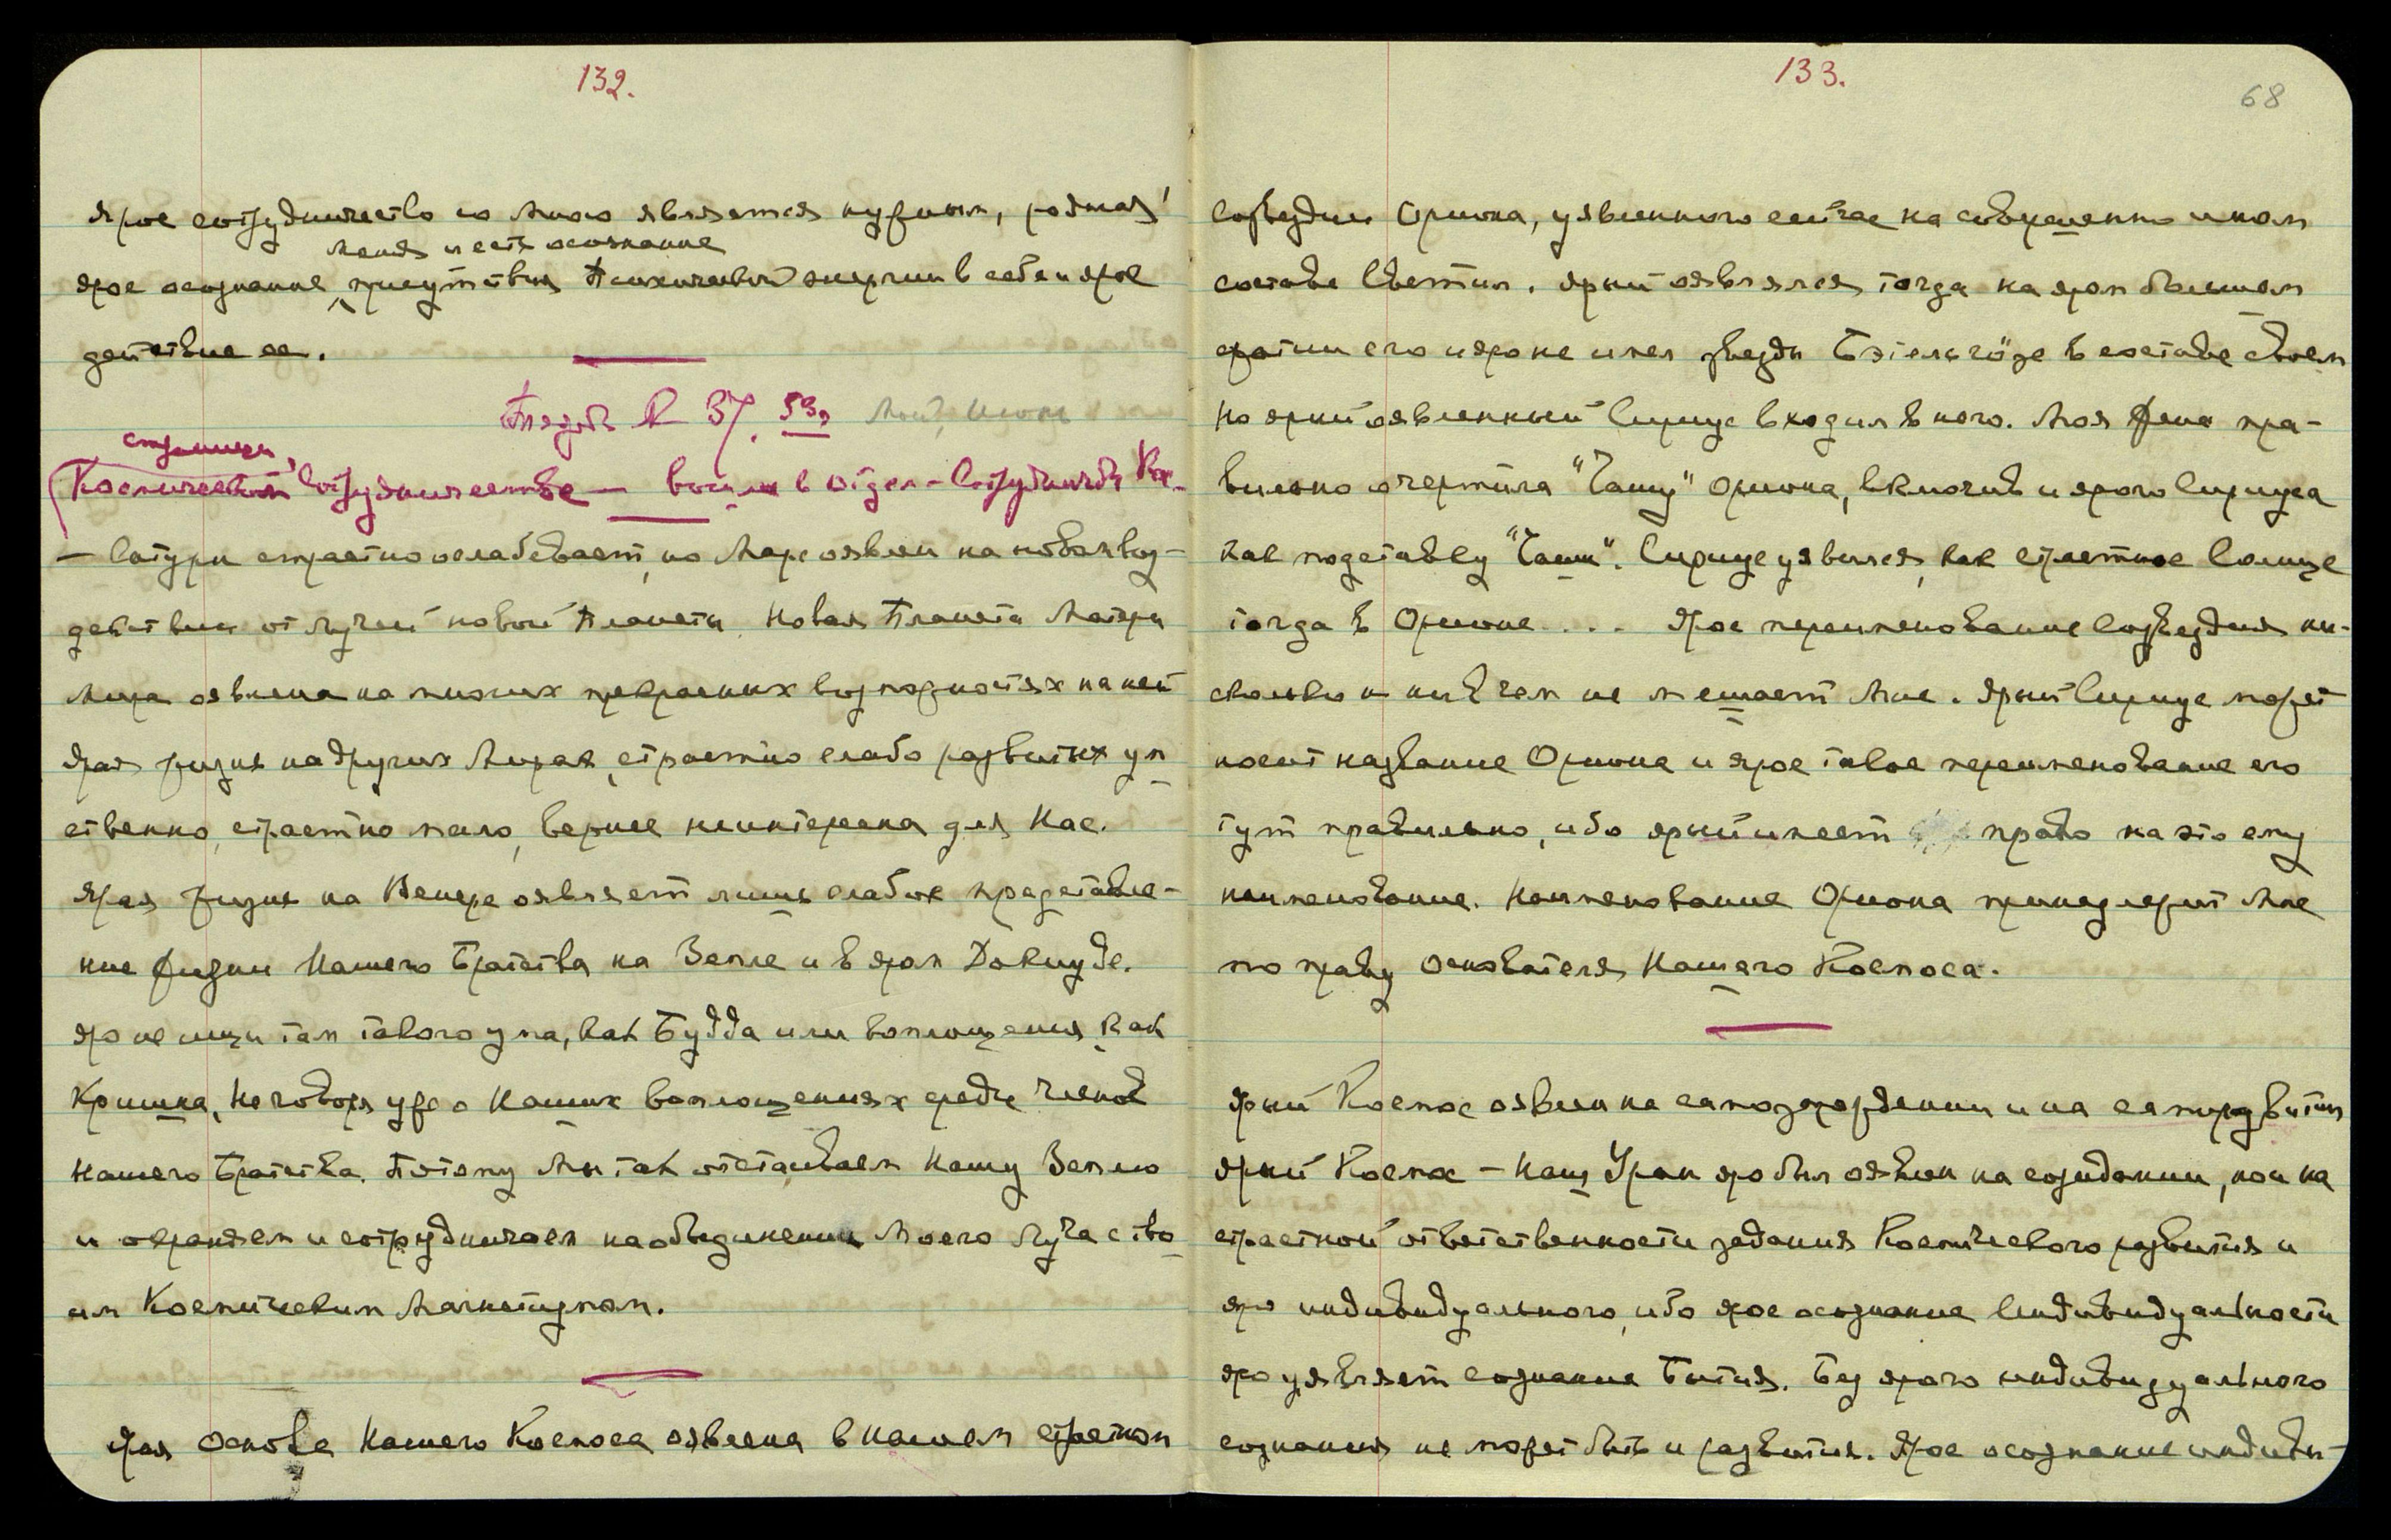 132.
Ярое сотрудничество со Мною является нужным, родная!
Меня и есть осознание
ярое осознание присутствия Психической энергии в себе и ярое
действие ее.
53 Май, Июнь
страницы,
Космическом Сотрудничестве — вошли в отдел — Сотрудничество
— Сатурн страстно ослабевает, но Марс оявлен на новом воз-
действии от лучей новой планеты. Новая Планета Матери
Мира оявлена на многих прекрасных возможностях на ней
Ярая жизнь на других Мирах, страстно слабо развитых ум
ственно, страстно мало, вернее неинтересна для Нас.
Ярая жизнь на Венере оявляет лишь слабое представле-
ние жизни Нашего Братства на Земле и в яром Докиуде.
Яро не ищи там такого ума, как Будда или воплощения, как
Кришна, не говоря уже о Наших воплощениях среди членов
Нашего Братства. Потому Мы так отстаиваем Нашу Землю
и охраняем и сотрудничаем на объединении Моего Луча с тво
им Космическим Магнетизмом.
Ярая Основа Нашего Космоса оявлена в нашем страстном
133.
68
Созвездии Ориона, уявленного сейчас на совершенно ином
составе Светил. Ярый оявлялся тогда на яром большом
его и яро не имел звезды Бэтельгёзе в составе своем
Но ярый оявленный Сириус входил в него. Моя Жена пра-
вильно очертила "Чашу" Ориона, включив и ярого Сириуса
как подставку "Чаши". Сириус уявился, как страстное Солнце
тогда в Орионе . . . Ярое переименование Созвездия ни-
сколько и ни в чем не мешает Мне. Ярый Сириус может
носит название Ориона и ярое такое переименование его
тут правильно, ибо ярый имеет право на это ему
наименование. Наименование Ориона принадлежит Мне
по праву Основателя Нашего Космоса.
Ярый Космос оявлен на самозарождении и на саморазвитии
ярый Космос — Наш Уран яро был оявлен на созидании, но и на
страстной ответственности задания Космического развития и
яро индивидуального, ибо ярое осознание Индивидуальности
яро уявляет сознание Бытия. Без ярого индивидуального
сознания не может быть и развития. Ярое осознание индиви-